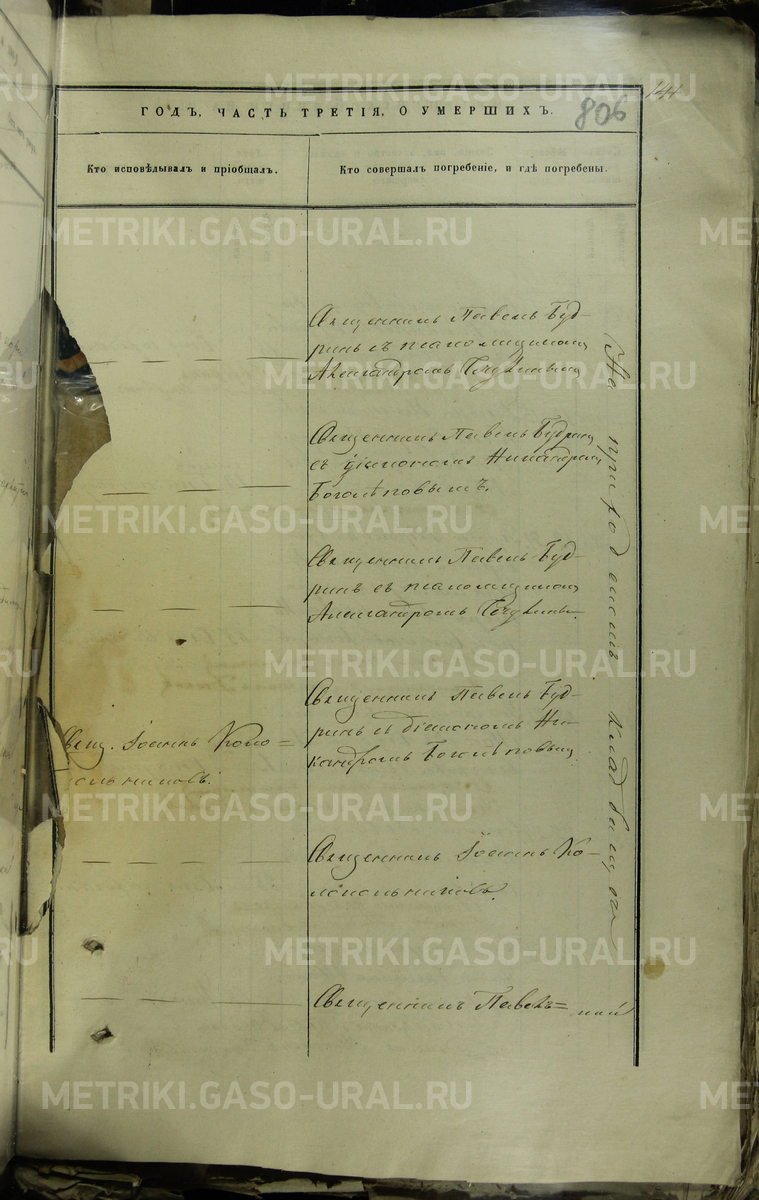 144
ГОДЪ, ЧАСТЬ ТРЕТІЯ, О УМЕРШИХЪ.
806
Кто исповѣдывалъ и пріобщалъ.
Кто совершалъ погребеніе, и гдѣ погребены.
Священникъ Павелъ Буд-
ринъ съ псаломщикомъ
Александромъ
Священникъ Павелъ Будринъ
съ діакономъ Никандромъ
Боголѣповымъ.
Священникъ Павелъ Буд-
ринъ съ псаломщикомъ
Александромъ
Священникъ Павелъ Буд-
ринъ съ діакономъ Ни-
кандромъ Боголѣповымъ
Свящ. Іоаннъ Коло-
кольниковъ.
Священникъ Іоаннъ Ко-
локольниковъ.
Священникъ Павелъ=
На приходскомъ кладбищѣ
METRIKI.GASO-URAL.RU